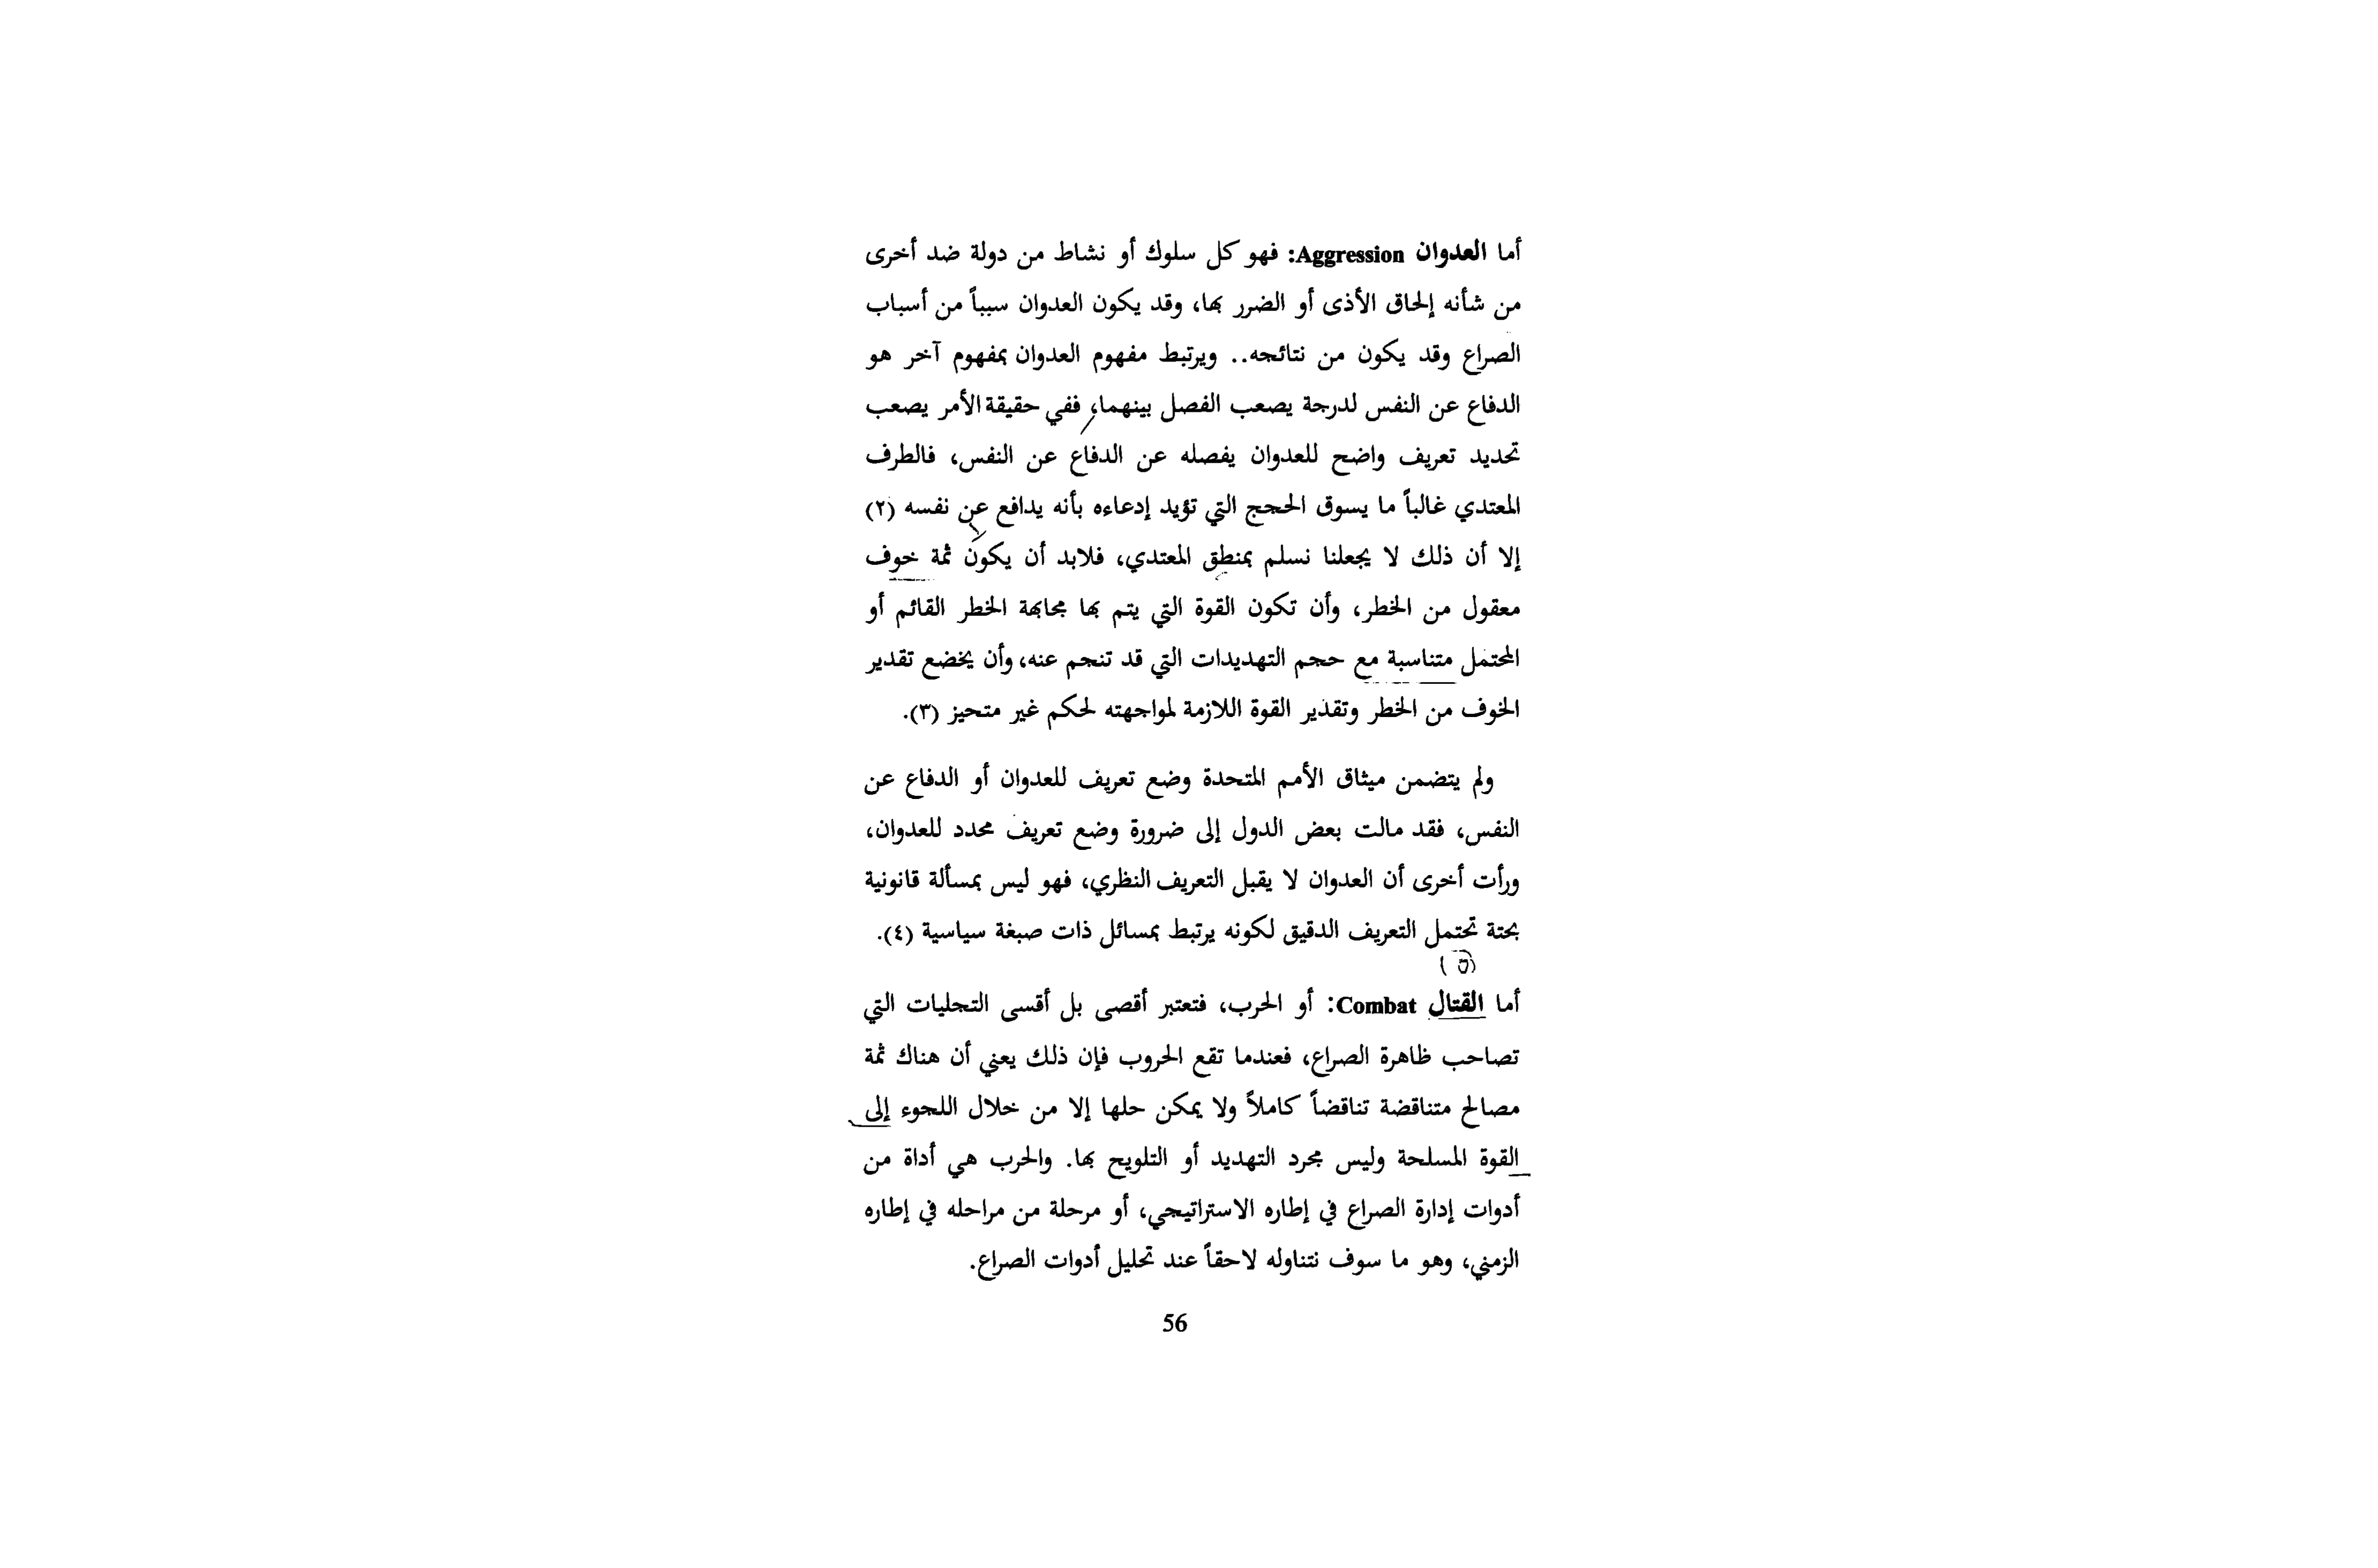 أما العدوان Aggression: فهو كل سلوك أو نشاط من دولة ضد أخرى
من شأنه إلحاق الأذى أو الضرر بها، وقد يكون العدوان سبباً من أسباب
الصراع وقد يكون من نتائجه.. ويرتبط مفهوم العدوان بمفهوم آخر هو
الدفاع عن النفس لدرجة يصعب الفصل بينهما، ففي حقيقة الأمر يصعب
تحديد تعريف واضح للعدوان يفصله عن الدفاع عن النفس، فالطرف
المعتدي غالباً ما يسوق الحجج التي تؤيد إدعاءه بأنه يدافع عن نفسه (٢)
إلا أن ذلك لا يجعلنا نسلم بمنطق المعتدي، فلابد أن يكون ثمة خوف
معقول من الخطر، وأن تكون القوة التي يتم بها مجابهة الخطر القائم أو
المحتمل متناسبة مع حجم التهديدات التي قد تنجم عنه، وأن يخضع تقدير
الخوف من الخطر وتقدير القوة اللازمة لمواجهته لحكم غير متحيز (٣).
ولم يتضمن ميثاق الأمم المتحدة وضع تعريف للعدوان أو الدفاع عن
النفس، فقد مالت بعض الدول إلى ضرورة وضع تعريف محدد للعدوان،
ورأت أخرى أن العدوان لا يقبل التعريف النظري، فهو ليس بمسألة قانونية
بحتة تحتمل التعريف الدقيق لكونه يرتبط بمسائل ذات صبغة سياسية (٤).
أما القتال Combat: أو الحرب، فتعتبر أقصى بل أقسى التجليات التي
تصاحب ظاهرة الصراع، فعندما تقع الحروب فإن ذلك يعني أن هناك ثمة
مصالح متناقضة تناقضاً كاملاً ولا يمكن حلها إلا من خلال اللجوء إلى
القوة المسلحة وليس مجرد التهديد أو التلويح بها. والحرب هي أداة من
أدوات إدارة الصراع في إطاره الاستراتيجي، أو مرحلة من مراحله في إطاره
الزمني، وهو ما سوف نتناوله لاحقاً عند تحليل أدوات الصراع.
56